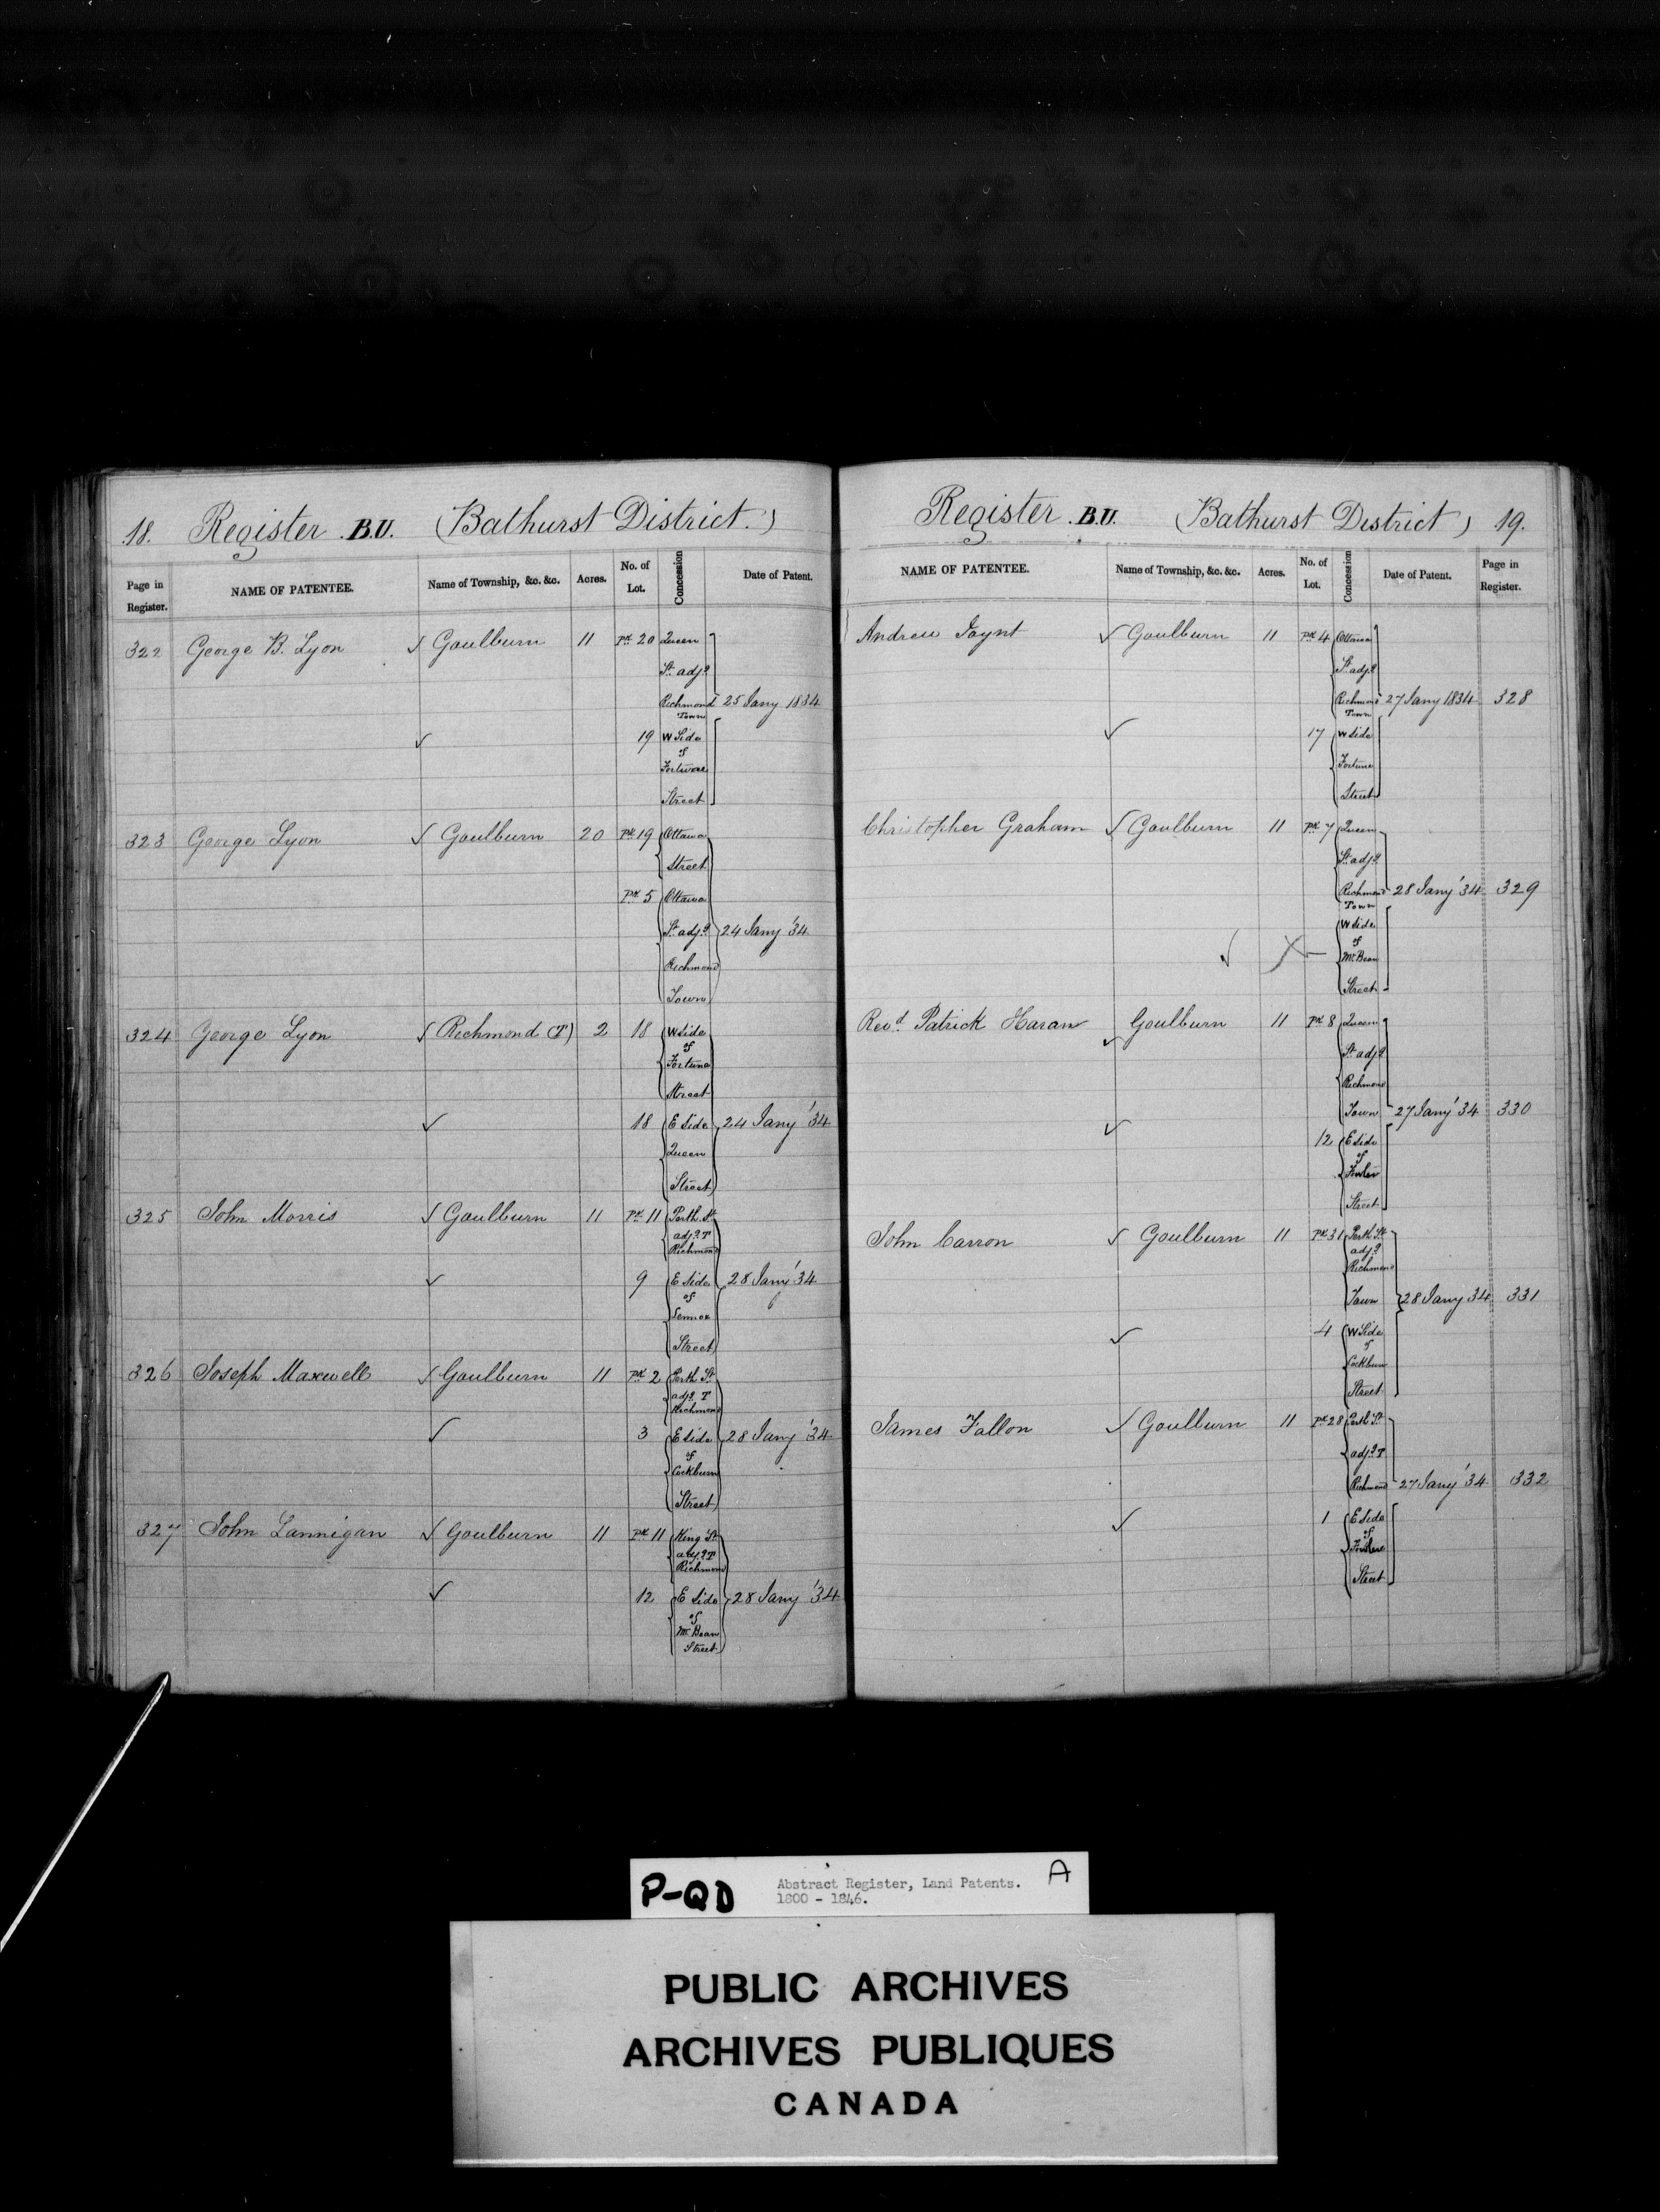 18. Register B.U. (Bathurst District.)
Page in Register. NAME OF PATENTEE. Name of Township, &c. &c. Acres. No. of Lot. Concession Date of Patent.
322 George B. Lyon √ Goulburn 11 Pk 20 Queen
St. adjg
Richmond 25 Jany 1834
Town
√ 19 W Side
of
Fortune
Street
323 George Lyon √ Goulburn 20 Pk 19 Ottawa
Street
Pk 5 Ottawa
St. adjg 24 Jany '34
Richmond
Town
324 George Lyon √ Richmond (T) 2 18 W Side
of
Fortune
Street
√ 18 E Side 24 Jany '34
Queen
Street
325 John Morris √ Goulburn 11 Pk 11 Perth St
adjg T
Richmond
√ 9 E Side 28 Jany '34
of
Lennox
Street
326 Joseph Maxwell √ Goulburn 11 Pk 2 Perth St
adjg T
Richmond
√ 3 E Side 28 Jany '34
of
Cockburn
Street
327 John Lannigan √ Goulburn 11 Pk 11 King St
adjg T
Richmond
√ 12 E Side 28 Jany '34
of
Mc Bean
Street
Register B.U. (Bathurst District) 19.
NAME OF PATENTEE. Name of Township, &c. &c. Acres. No. of Lot. Concession Date of Patent. Page in Register.
Andrew Joynt √ Goulburn 11 Pk 4 Ottawa
St. adjg
Richmond 27 Jany 1834 328
Town
√ 17 W Side
Fortune
Street
Christopher Graham √ Goulburn 11 Pk 7 Queen
St. adjg
Richmond 28 Jany '34 329
Town
W Side
√ X of
Mc Bean
Street
Revd Patrick Haran √ Goulburn 11 Pk 8 Queen
St. adjg
Richmond
Town 27 Jany '34 330
√ 12 E Side
of
Fowler
Street
John Carron √ Goulburn 11 Pk 31 Perth St
adjg
Richmond
Town 28 Jany 34 331
√ 4 W Side
of
Cockburn
Street
James Fallon √ Goulburn 11 Pk 28 Perth St
adjg T
Richmond 27 Jany '34 332
√ 1 E Side
of
Fowler
Street
P-QD Abstract Register, Land Patents. A
1800 - 1846.
PUBLIC ARCHIVES
ARCHIVES PUBLIQUES
CANADA